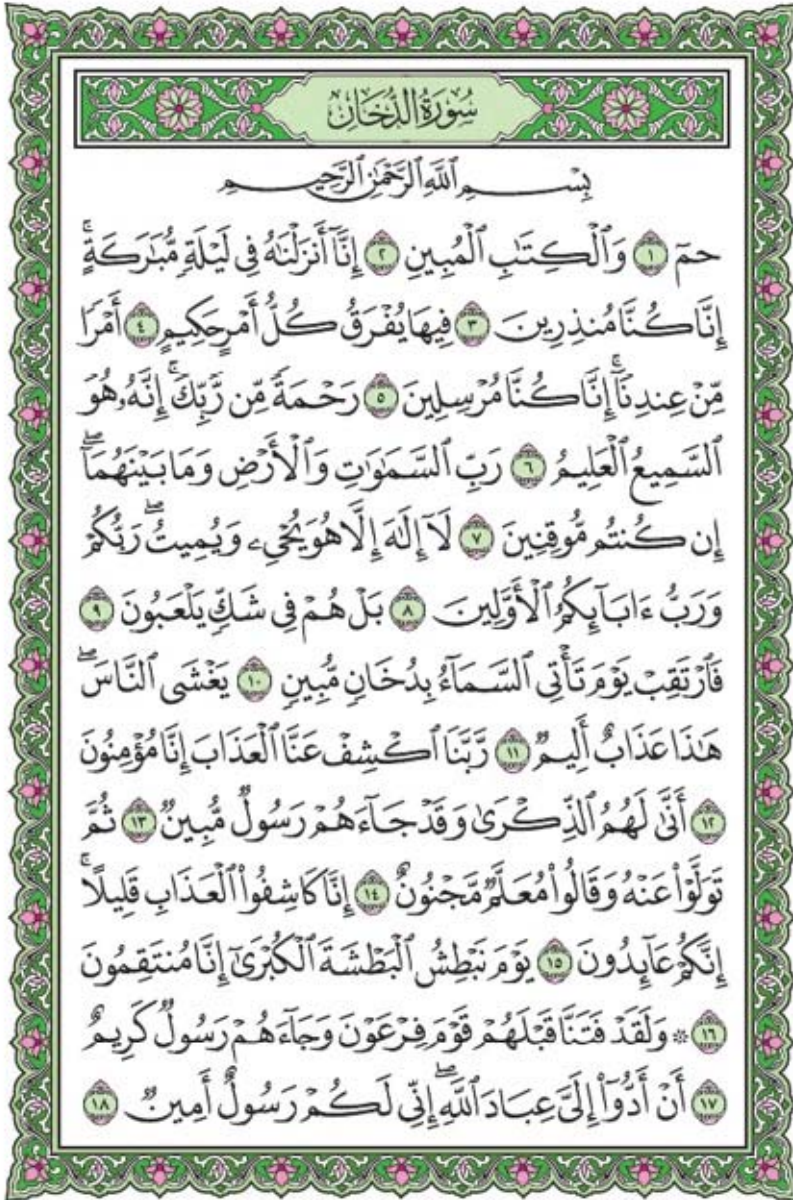 سُورَةُ الدُّخَانِ
بِسْمِ ٱللَّهِ ٱلرَّحْمَٰنِ ٱلرَّحِيمِ
حمٓ ١ وَٱلْكِتَٰبِ ٱلْمُبِينِ ٢ إِنَّآ أَنزَلْنَٰهُ فِى لَيْلَةٍ مُّبَٰرَكَةٍۚ
إِنَّا كُنَّا مُنذِرِينَ ٣ فِيهَا يُفْرَقُ كُلُّ أَمْرٍ حَكِيمٍ ٤ أَمْرًا
مِّنْ عِندِنَآۚ إِنَّا كُنَّا مُرْسِلِينَ ٥ رَحْمَةً مِّن رَّبِّكَۚ إِنَّهُۥ هُوَ
ٱلسَّمِيعُ ٱلْعَلِيمُ ٦ رَبِّ ٱلسَّمَٰوَٰتِ وَٱلْأَرْضِ وَمَا بَيْنَهُمَآۖ
إِن كُنتُم مُّوقِنِينَ ٧ لَآ إِلَٰهَ إِلَّا هُوَ يُحْىِۦ وَيُمِيتُۖ رَبُّكُمْ
وَرَبُّ ءَابَآئِكُمُ ٱلْأَوَّلِينَ ٨ بَلْ هُمْ فِى شَكٍّ يَلْعَبُونَ ٩
فَٱرْتَقِبْ يَوْمَ تَأْتِى ٱلسَّمَآءُ بِدُخَانٍ مُّبِينٍ ١٠ يَغْشَى ٱلنَّاسَۖ
هَٰذَا عَذَابٌ أَلِيمٌ ١١ رَّبَّنَا ٱكْشِفْ عَنَّا ٱلْعَذَابَ إِنَّا مُؤْمِنُونَ
١٢ أَنَّىٰ لَهُمُ ٱلذِّكْرَىٰ وَقَدْ جَآءَهُمْ رَسُولٌ مُّبِينٌ ١٣ ثُمَّ
تَوَلَّوْا۟ عَنْهُ وَقَالُوا۟ مُعَلَّمٌ مَّجْنُونٌ ١٤ إِنَّا كَاشِفُوا۟ ٱلْعَذَابِ قَلِيلًاۚ
إِنَّكُمْ عَآئِدُونَ ١٥ يَوْمَ نَبْطِشُ ٱلْبَطْشَةَ ٱلْكُبْرَىٰٓ إِنَّا مُنتَقِمُونَ
١٦ ۞ وَلَقَدْ فَتَنَّا قَبْلَهُمْ قَوْمَ فِرْعَوْنَ وَجَآءَهُمْ رَسُولٌ كَرِيمٌ
١٧ أَنْ أَدُّوٓا۟ إِلَىَّ عِبَادَ ٱللَّهِۖ إِنِّى لَكُمْ رَسُولٌ أَمِينٌ ١٨